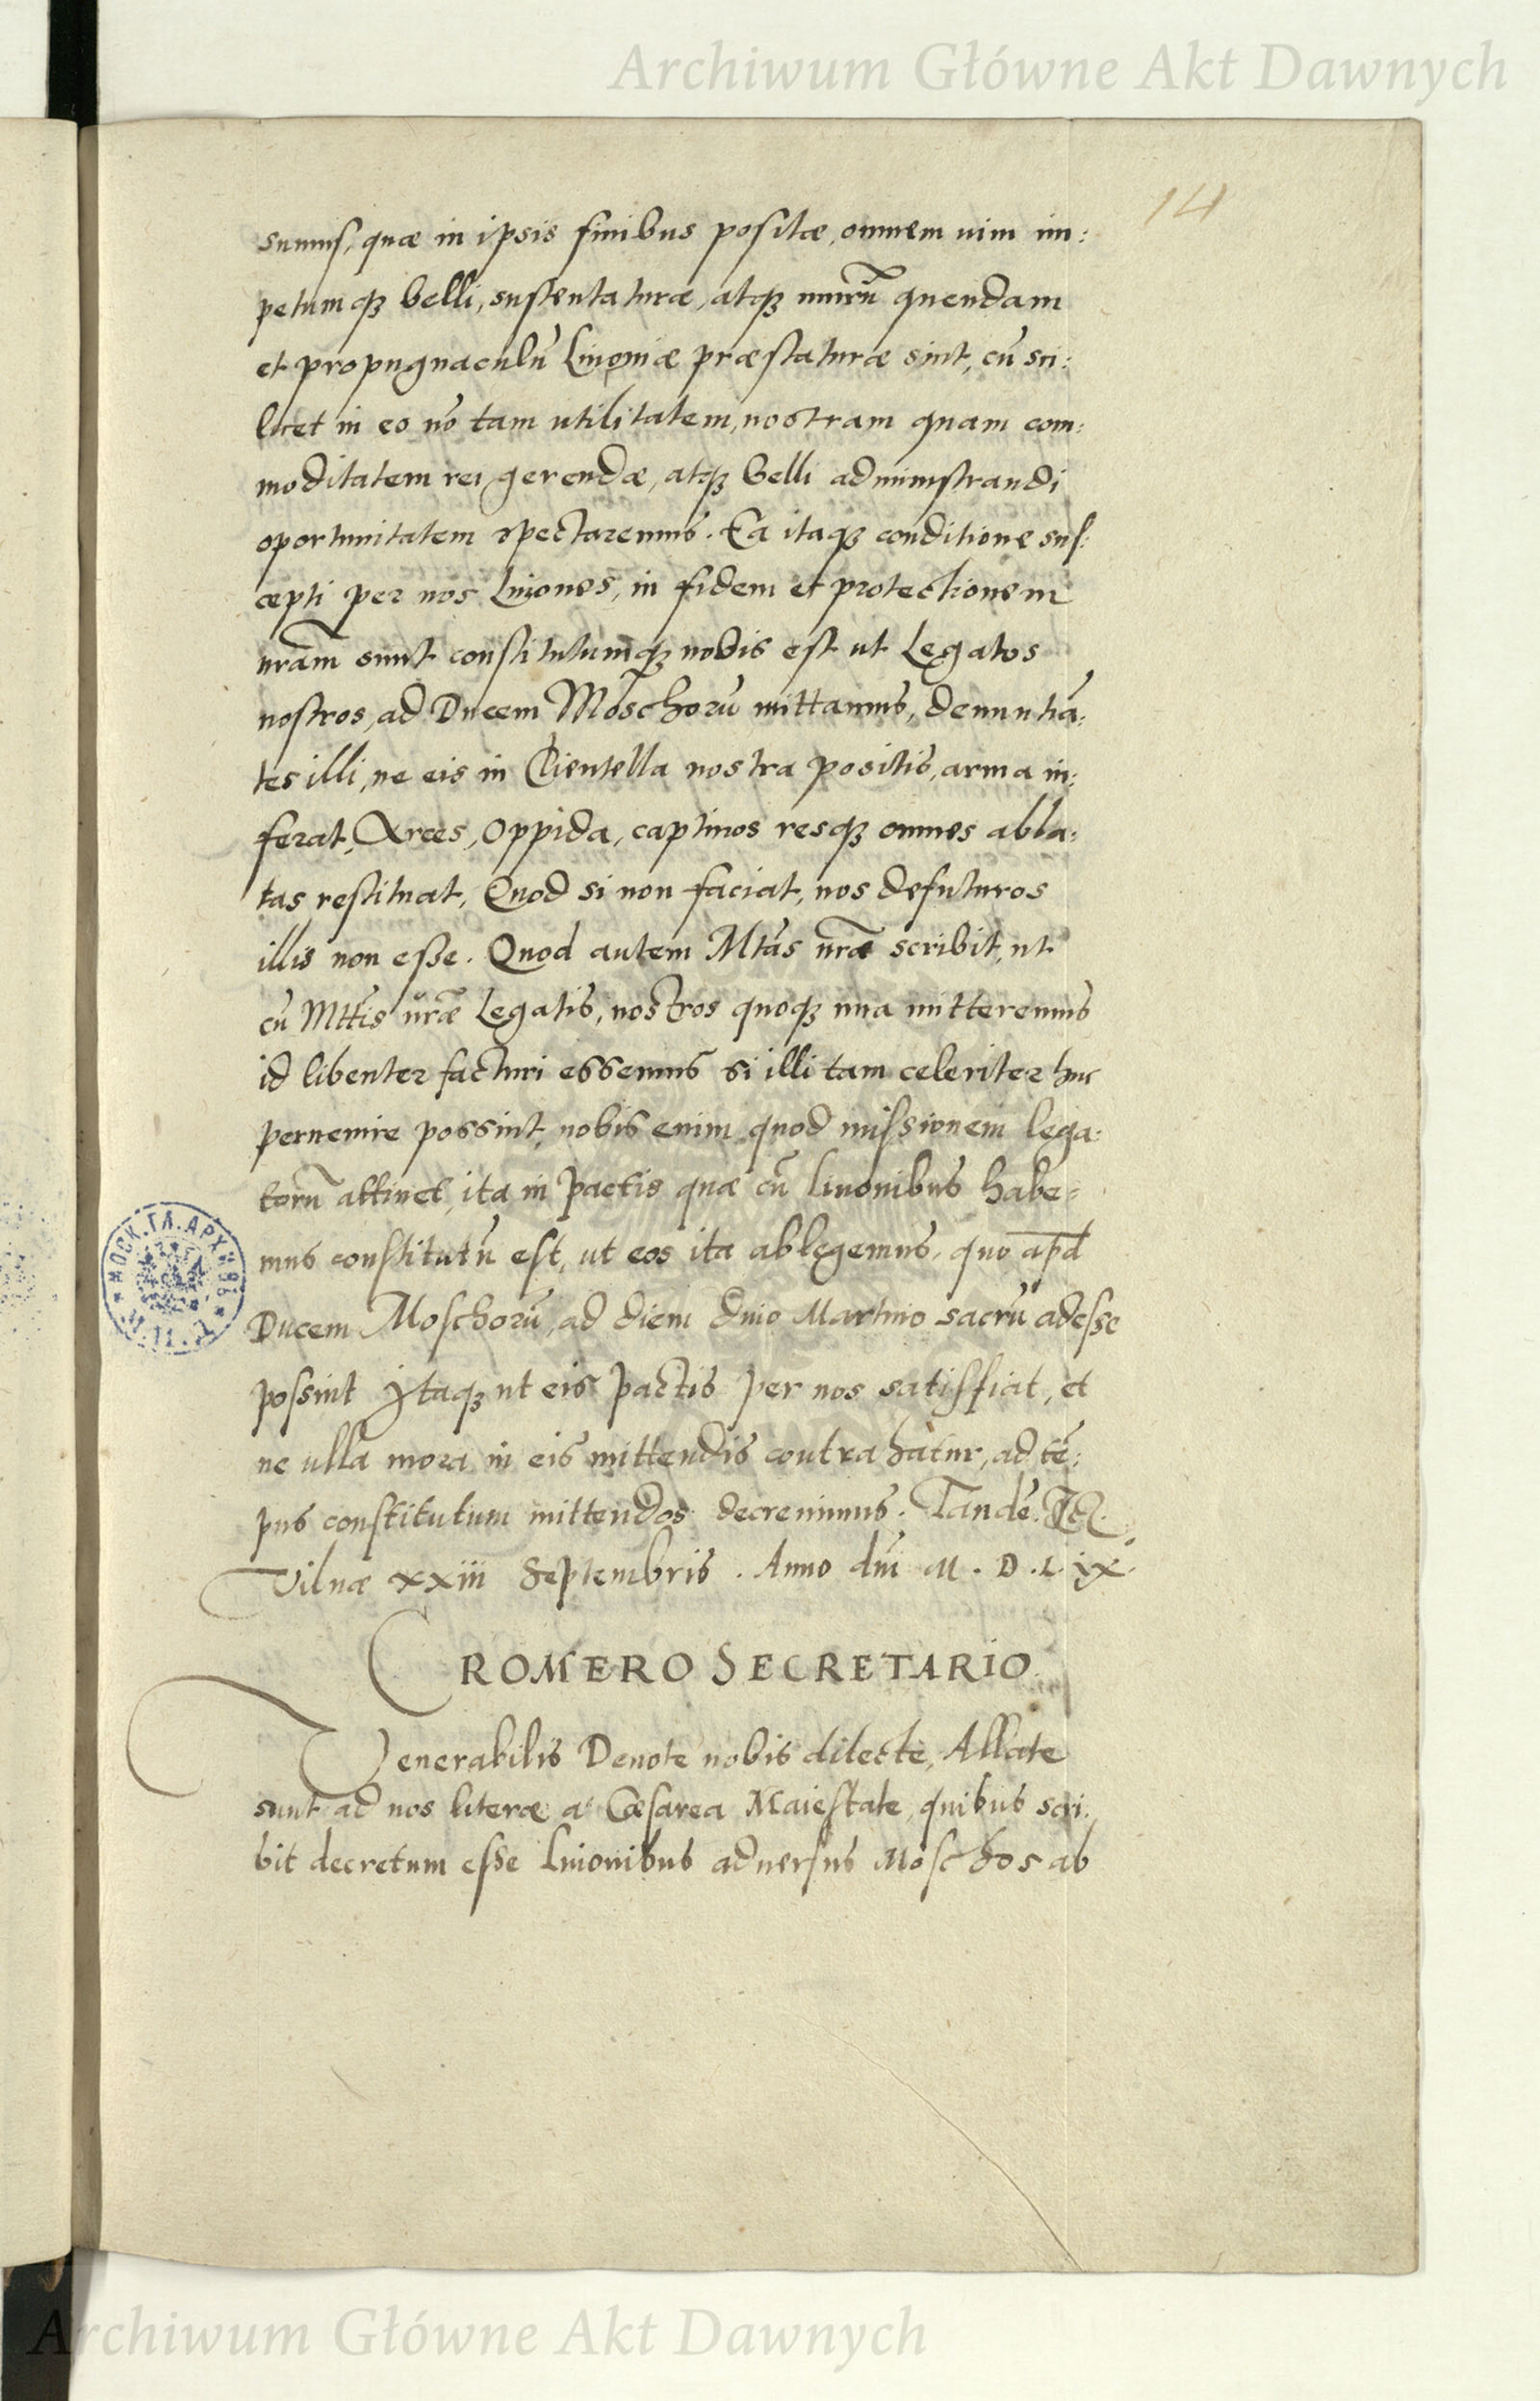 Archiwum Główne Akt Dawnych
14
sumus, quæ in ipsis finibus positæ, omnem uim im:
petumqꝫ belli, sustentaturæ, atqꝫ murũ quendam
et propugnaculũ Liuoniæ præstaturæ sint, cũ sci:
licet in eo nõ tam utilitatem nostram quam com:
moditatem rei gerendæ, atqꝫ belli administrandi
oportunitatem spectaremus. Ea itaqꝫ conditione sus:
cepti per nos Liuones, in fidem et protectionem
nrãm sunt constitutumqꝫ nobis est ut Legatos
nostros, ad Ducem Moschorũ mittamus, denuntiã:
tes illi, ne eis in Clientella nostra positis, arma in:
ferat, Arces, Oppida, captiuos resqꝫ omnes abla:
tas restituat, Quod si non faciat, nos defuturos
illis non esse. Quod autem Mtãs urã scribit, ut
cũ Mttis uræ̃ Legatis, nostros quoqꝫ una mitteremus
id libenter facturi essemus si illi tam celeriter huc
peruenire possint, nobis enim quod missionem lega:
torũ attinet, ita in pactis quæ cũ liuonibus habe=
mus constitutũ est, ut eos ita ablegemus, quo apd̃
Ducem Moschorũ, ad diem Diuo Martino sacrũ adesse
possint Itaqꝫ ut eis pactis per nos satisfiat, et
ne ulla mora in eis mittendis contrahatur, ad tẽ:
pus constitutum mittendos decreuimus. Tandẽ. Etc.
Vilnæ xxiii Septembris. Anno dni M. D. L. ix.
CROMERO SECRETARIO.
Venerabilis Deuote nobis dilecte, Allatæ
sunt ad nos literæ a Cæsarea Maiestate, quibus scri:
bit decretum esse Liuonibus aduersus Moschos ab
МОСК. ГЛ. АРХИВЪ
Archiwum Główne Akt Dawnych